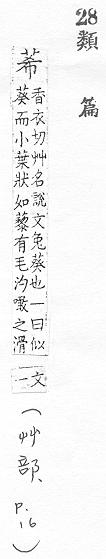 28類
篇
莃 香衣切艸名說文兔葵也一曰似
葵而小葉狀如藜有毛汋啖之滑
文一
(艸部、
P.
16)